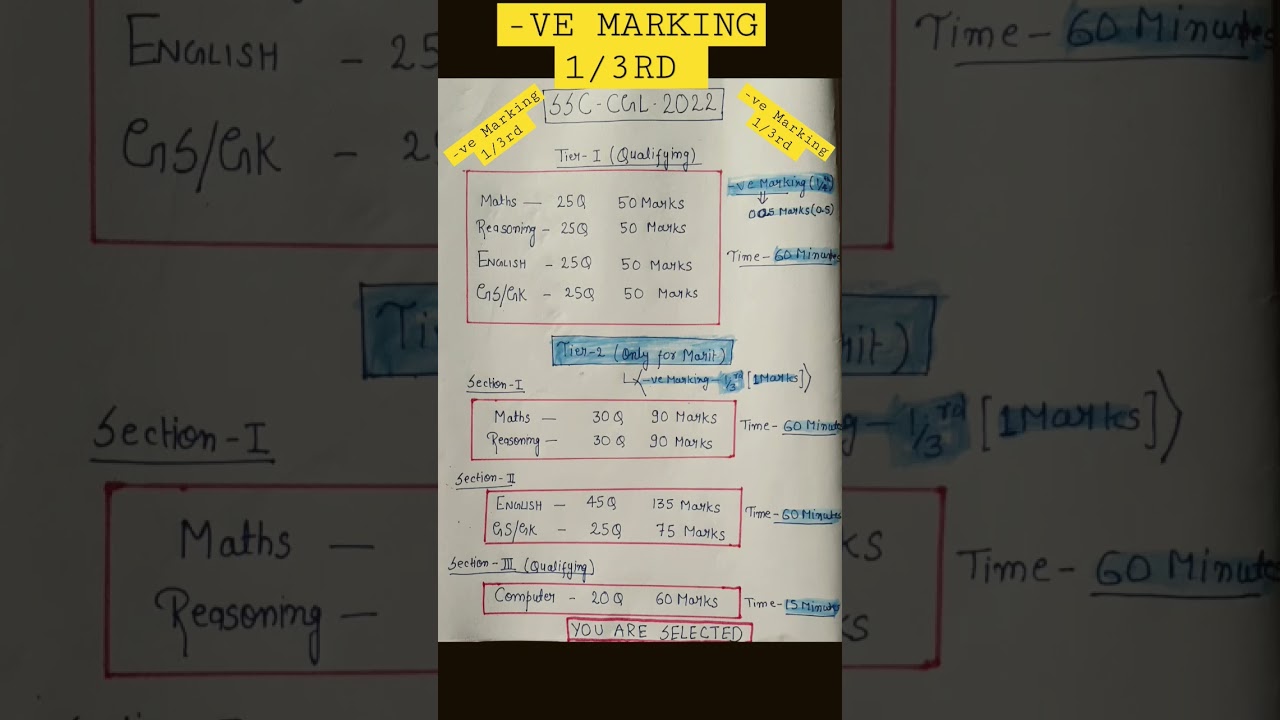 -VE MARKING
1/3RD
-ve Marking
1/3rd
-ve Marking
1/3rd
SSC-CGL-2022
Tier-I (Qualifying)
Maths — 25Q 50 Marks
Reasoning - 25Q 50 Marks
ENGLISH - 25Q 50 Marks
GS/GK - 25Q 50 Marks
-ve Marking
Marks (0.5)
Time - 60 Minutes
Tier-2 (Only for Marit)
-ve Marking - 1/3rd [1 Marks]
Section-I
Maths — 30Q 90 Marks
Reasoning - 30Q 90 Marks
Time - 60 Minutes
Section-II
ENGLISH — 45Q 135 Marks
GS/GK - 25Q 75 Marks
Time - 60 Minutes
Section-III (Qualifying)
Computer - 20Q 60 Marks
Time - 15 Minutes
YOU ARE SELECTED
ENGLISH - 25
GS/GK - 2
Section-I
Maths —
Reasoning —
Time - 60 Minutes
1/3rd [1 Marks]
Time - 60 Minutes